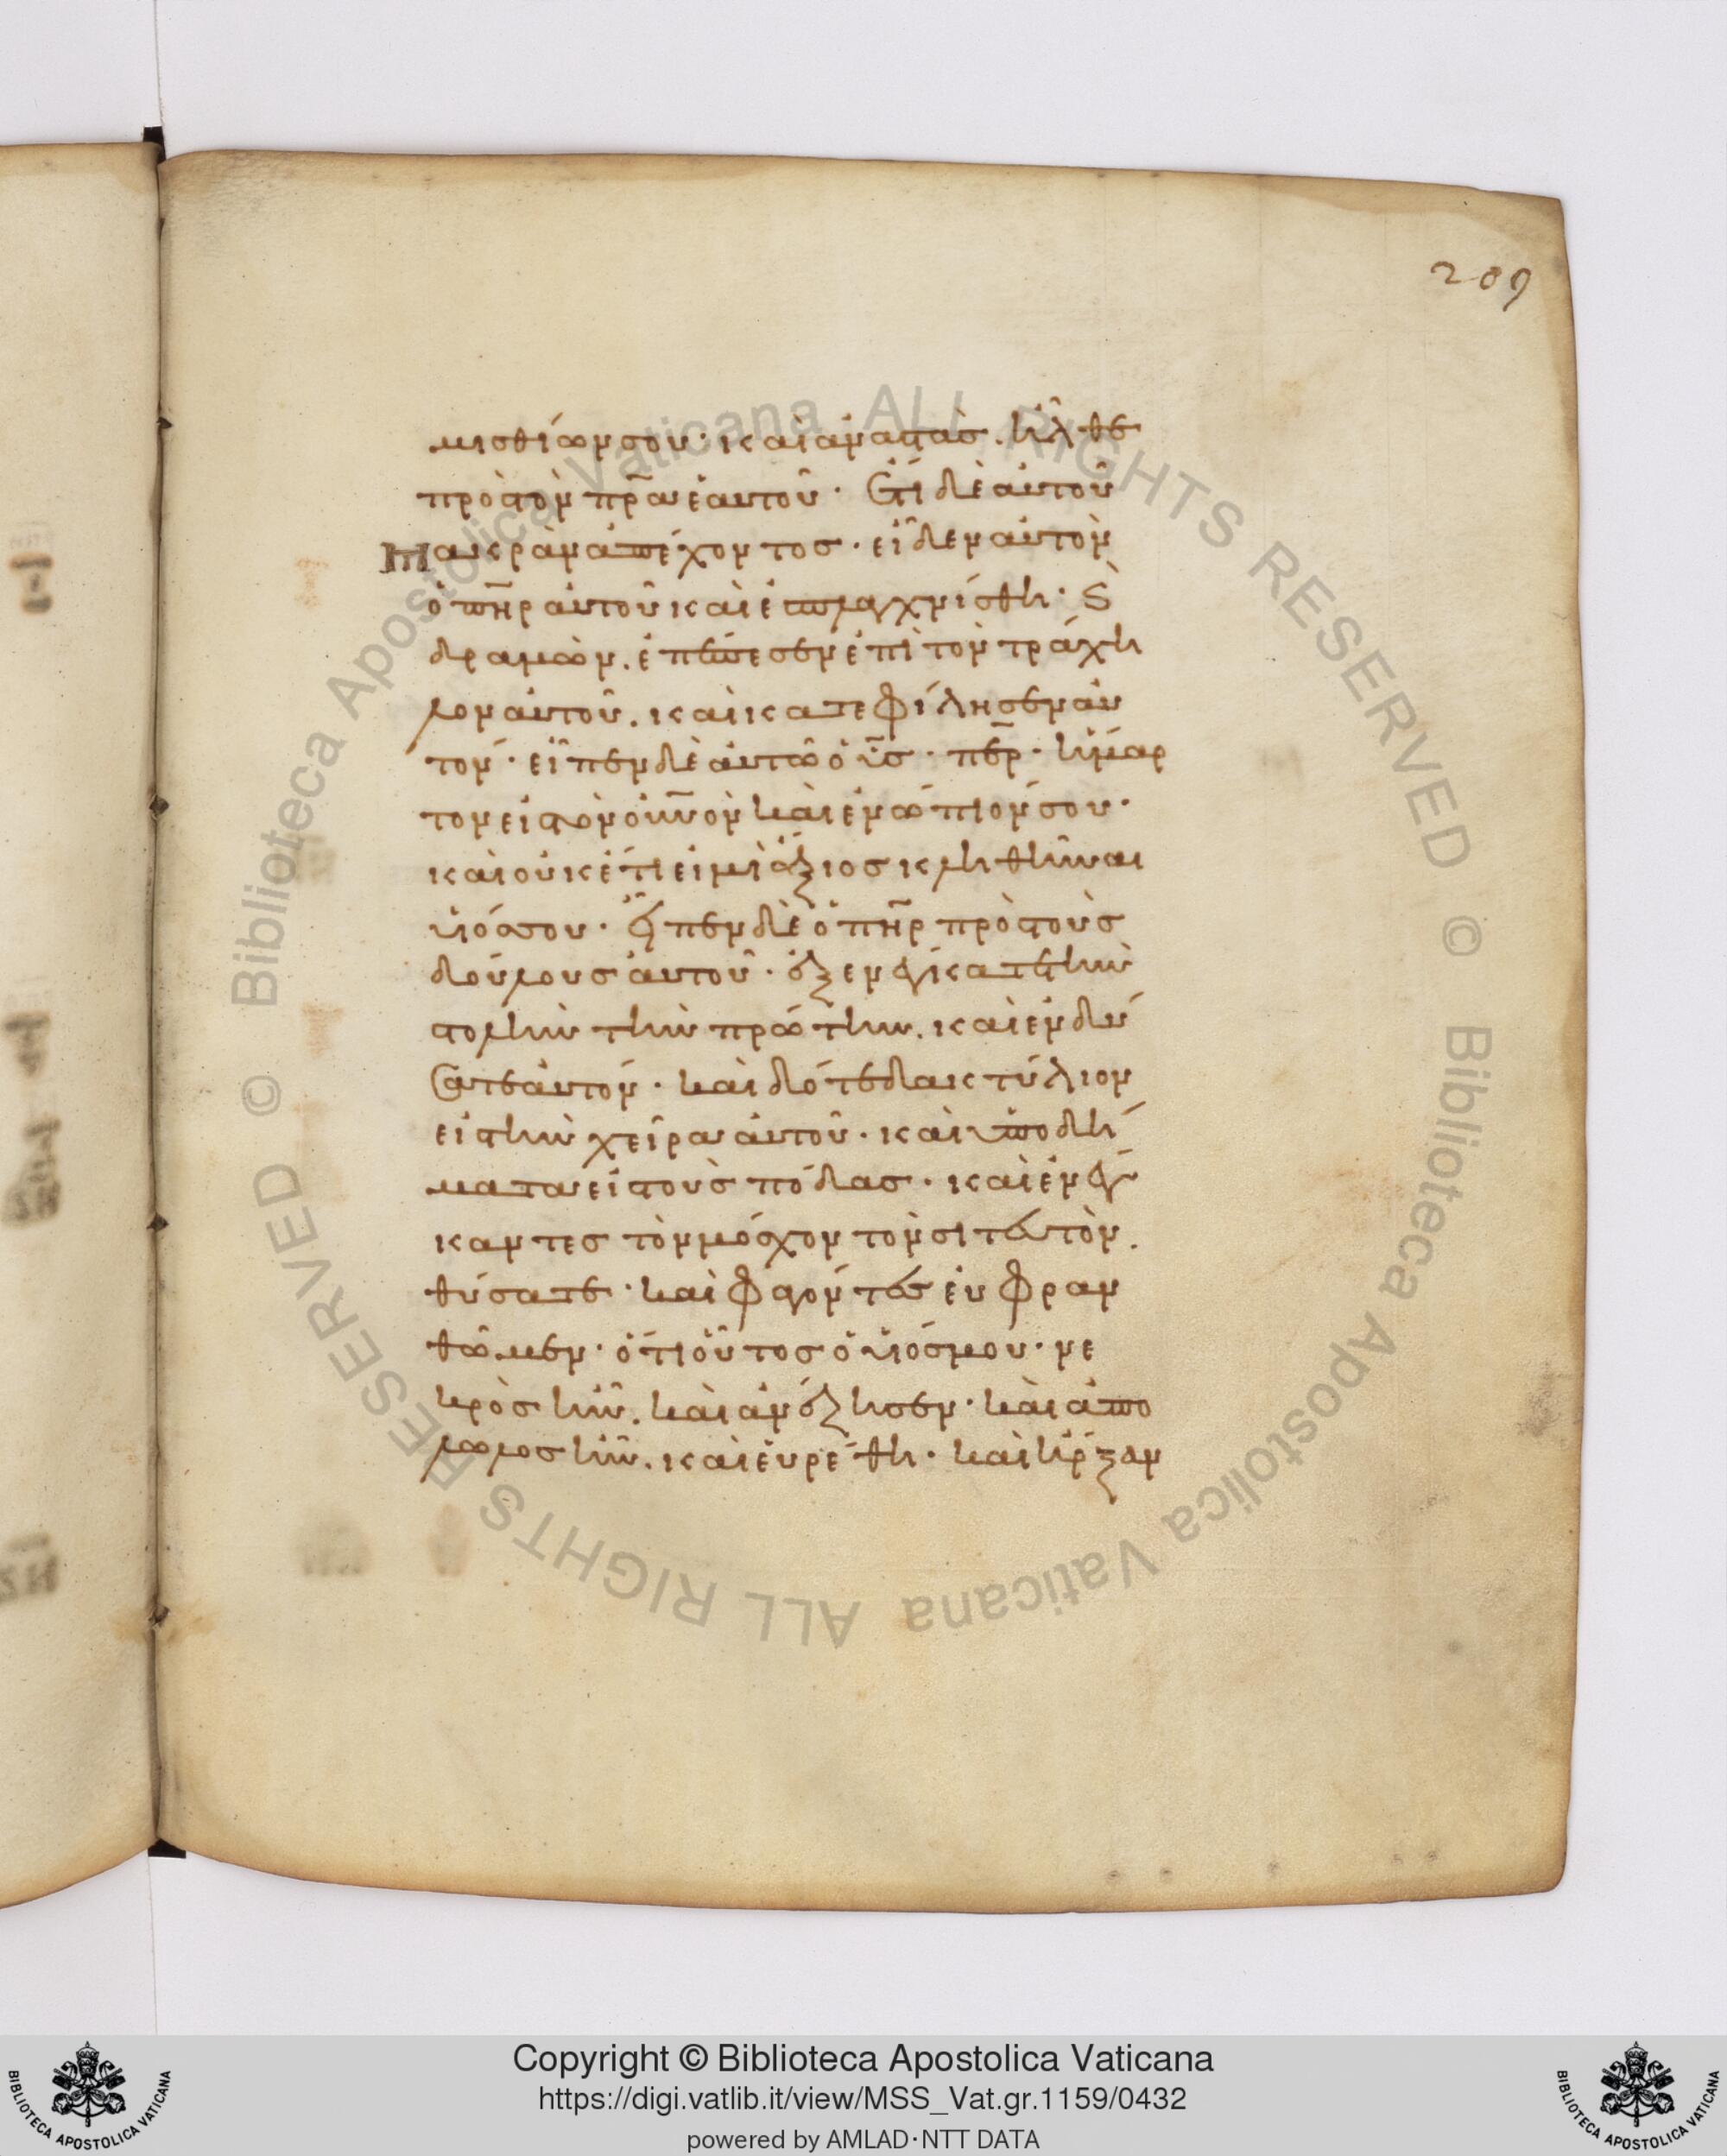 209
μισθίων σου· καὶ ἀναστὰς. ἦλθε
πρὸς τὸν πρ̅α ἑαυτοῦ· Ἔτι δὲ αὐτοῦ
μακρὰν ἀπέχοντος· εἶδεν αὐτὸν
ὁ πη̅ρ αὐτοῦ καὶ ἐσπλαγχνίσθη· Ϗ
δραμὼν. ἐπέπεσεν ἐπὶ τὸν τράχη
λον αὐτοῦ. καὶ κατεφίλησεν αὐ
τόν· εἶπεν δὲ αὐτῶ ὁ υ̅σ· πε̅ρ· ἥμαρ
τον εἰς τὸν οὐ̅νὸν καὶ ἐνώπιόν σου·
καὶ οὐκέτι εἰμὶ ἄξιος κληθῆναι
υἱός σου· εἶπεν δὲ ὁ πη̅ρ πρὸς τοὺς
δούλους αὐτοῦ· ἐξενέγκατε τὴν
στολὴν τὴν πρώτην. καὶ ἐνδύ
σατε αὐτόν· καὶ δότε δακτύλιον
εἰς τὴν χεῖρα αὐτοῦ· καὶ ὑποδή
ματα εἰς τοὺς πόδας· καὶ ἐνέγ
καντες τὸν μόσχον τὸν σιτευτὸν.
θύσατε· καὶ φαγόντες εὐφραν
θῶμεν· ὅτι οὗτος ὁ υἱός μου· νε
κρὸς ἦν. καὶ ἀνέζησεν· καὶ ἀπο
λωλὸς ἦν. καὶ εὑρέθη· καὶ ἤρξαν
© Biblioteca Apostolica Vaticana ALL RIGHTS RESERVED
© Biblioteca Apostolica Vaticana ALL RIGHTS RESERVED
BIBLIOTECA APOSTOLICA VATICANA
Copyright © Biblioteca Apostolica Vaticana
https://digi.vatlib.it/view/MSS_Vat.gr.1159/0432
powered by AMLAD·NTT DATA
BIBLIOTECA APOSTOLICA VATICANA